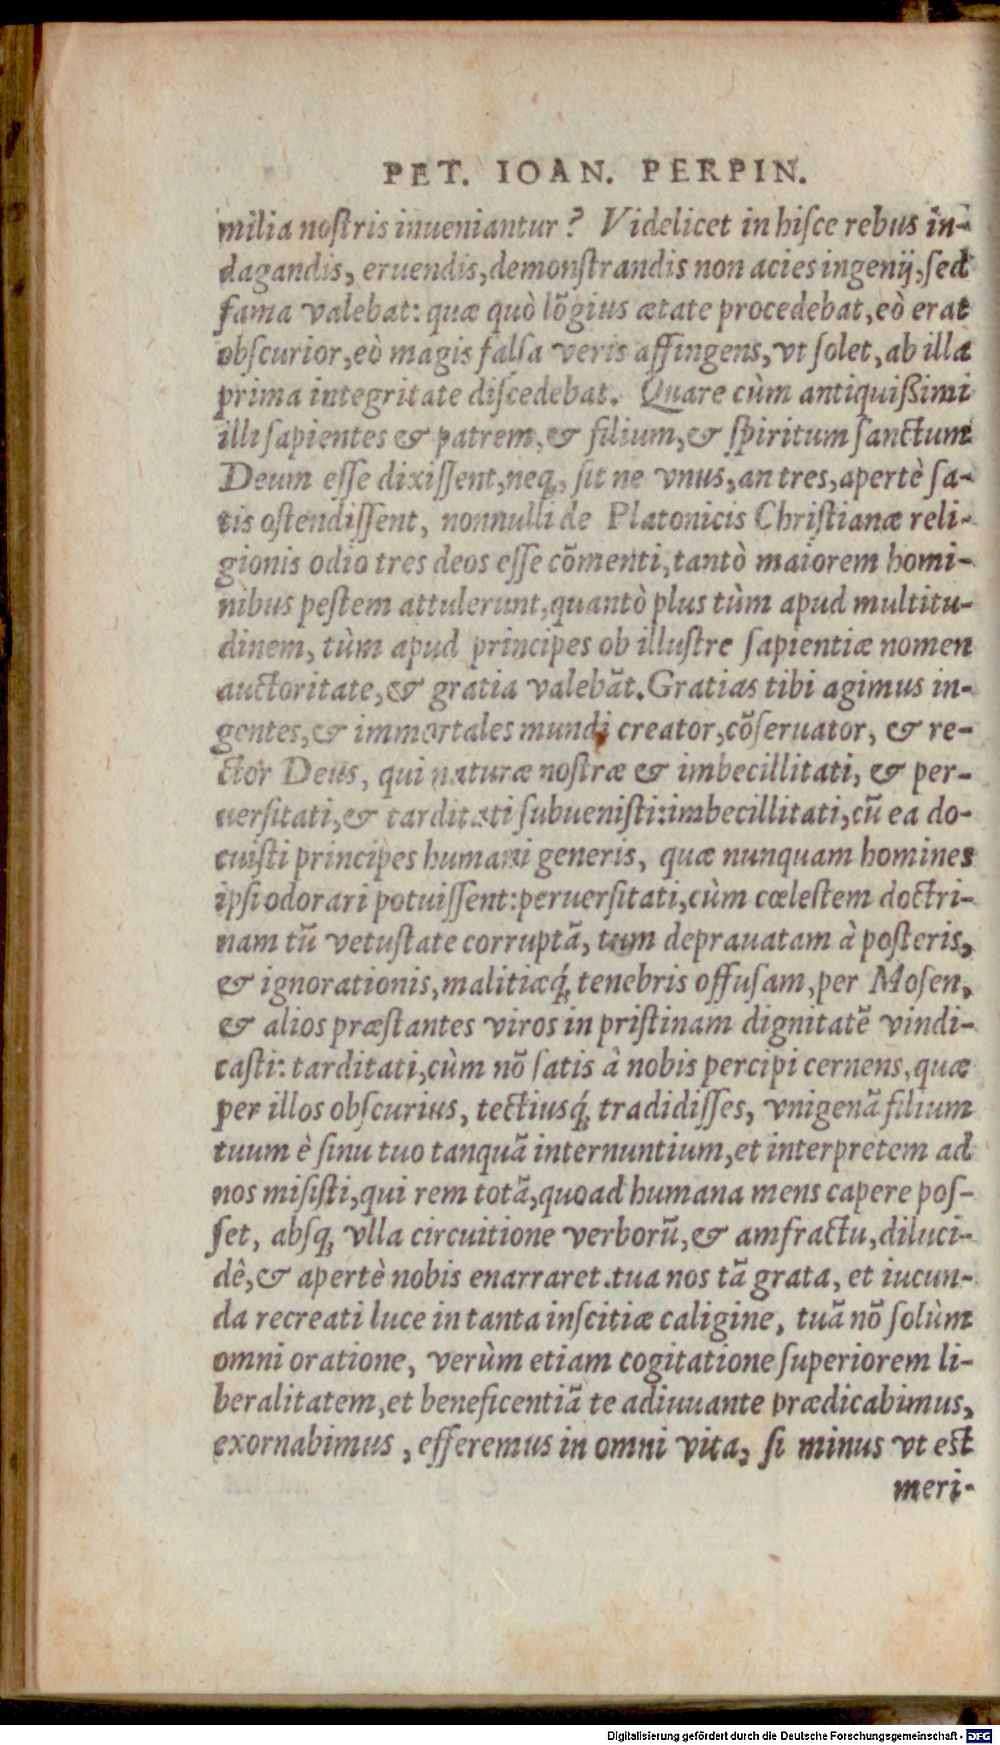 PET. IOAN. PERPIN.
milia noſtris inueniantur? Videlicet in hiſce rebus in-
dagandis, eruendis, demonſtrandis non acies ingenij, ſed
fama valebat: quæ quò lõgius ætate procedebat, eò erat
obſcurior, eò magis falſa veris affingens, vt ſolet, ab illa
prima integritate diſcedebat. Quare cùm antiquißimi
illi ſapientes & patrem, & filium, & ſpiritum ſanctum
Deum eſſe dixiſſent, neq; ſit ne vnus, an tres, apertè ſa-
tis oſtendiſſent, nonnulli de Platonicis Chriſtianæ reli-
gionis odio tres deos eſſe cõmenti, tantò maiorem homi-
nibus peſtem attulerunt, quantò plus tùm apud multitu-
dinem, tùm apud principes ob illuſtre ſapientiæ nomen
auctoritate, & gratia valebãt. Gratias tibi agimus in-
gentes, & immortales mundi creator, cõſeruator, & re-
ctor Deus, qui naturæ noſtræ & imbecillitati, & per-
uerſitati, & tarditati ſubueniſti: imbecillitati, cũ ea do-
cuiſti principes humani generis, quæ nunquam homines
ipſi odorari potuiſſent: peruerſitati, cùm cœleſtem doctri-
nam tũ vetuſtate corruptã, tum deprauatam à poſteris,
& ignorationis, malitiæq́; tenebris offuſam, per Moſen,
& alios præſtantes viros in priſtinam dignitatẽ vindi-
caſti: tarditati, cùm nõ ſatis à nobis percipi cernens, quæ
per illos obſcurius, tectiusq́; tradidiſſes, vnigenã filium
tuum è ſinu tuo tanquã internuntium, et interpretem ad
nos miſiſti, qui rem totã, quoad humana mens capere poſ-
ſet, absq; vlla circuitione verborũ, & amfractu, diluci-
dè, & apertè nobis enarraret. tua nos tã grata, et iucun-
da recreati luce in tanta inſcitiæ caligine, tuã nõ ſolùm
omni oratione, verùm etiam cogitatione ſuperiorem li-
beralitatem, et beneficentiã te adiuuante prædicabimus,
exornabimus, efferemus in omni vita, ſi minus vt eſt
meri-
Digitalisierung gefördert durch die Deutsche Forschungsgemeinschaft - DFG